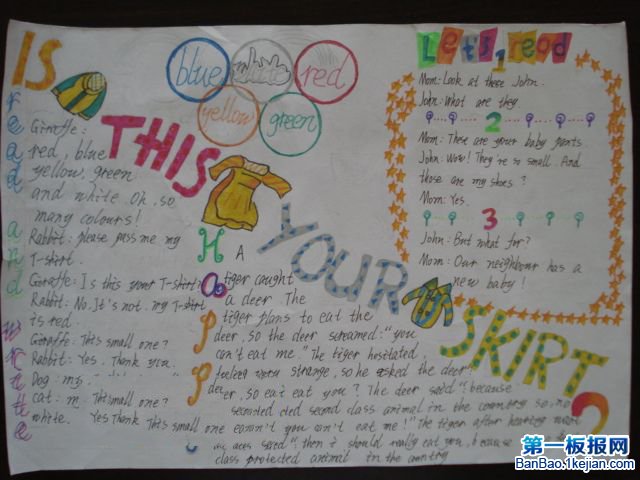 IS THIS YOUR SKIRT?
blue white red
yellow green
read and write
Giraffe:
red, blue
yellow, green
and white. Oh, so
many colours!
Rabbit: please pass me my
T-shirt.
Giraffe: Is this your T-shirt
Rabbit: No. It's not. my T-shirt
is red.
Giraffe: This small one?
Rabbit: Yes. Thank you.
Dog: my
cat: This small one?
white. Yes Thank
Happ
A
tiger caught
a deer. The
tiger plans to eat the
deer, so the deer screamed: "you
can't eat me." The tiger hesitated
feeling very strange, so he asked the deer:
deer, so eat eat you? The deer said "because
second class animal in the country so, no
small one you can't eat me!" The tiger after hearing
said" then i should really eat you, because
class protected animal in the
Let's read
1
Mom: Look at these John.
John: What are they
2
Mom: These are your baby pants.
John: Wow! They're so small. And
those are my shoes?
Mom: Yes.
3
John: But what for?
Mom: Our neighbour has a
new baby!
第一板报网
BanBao.1kejian.com